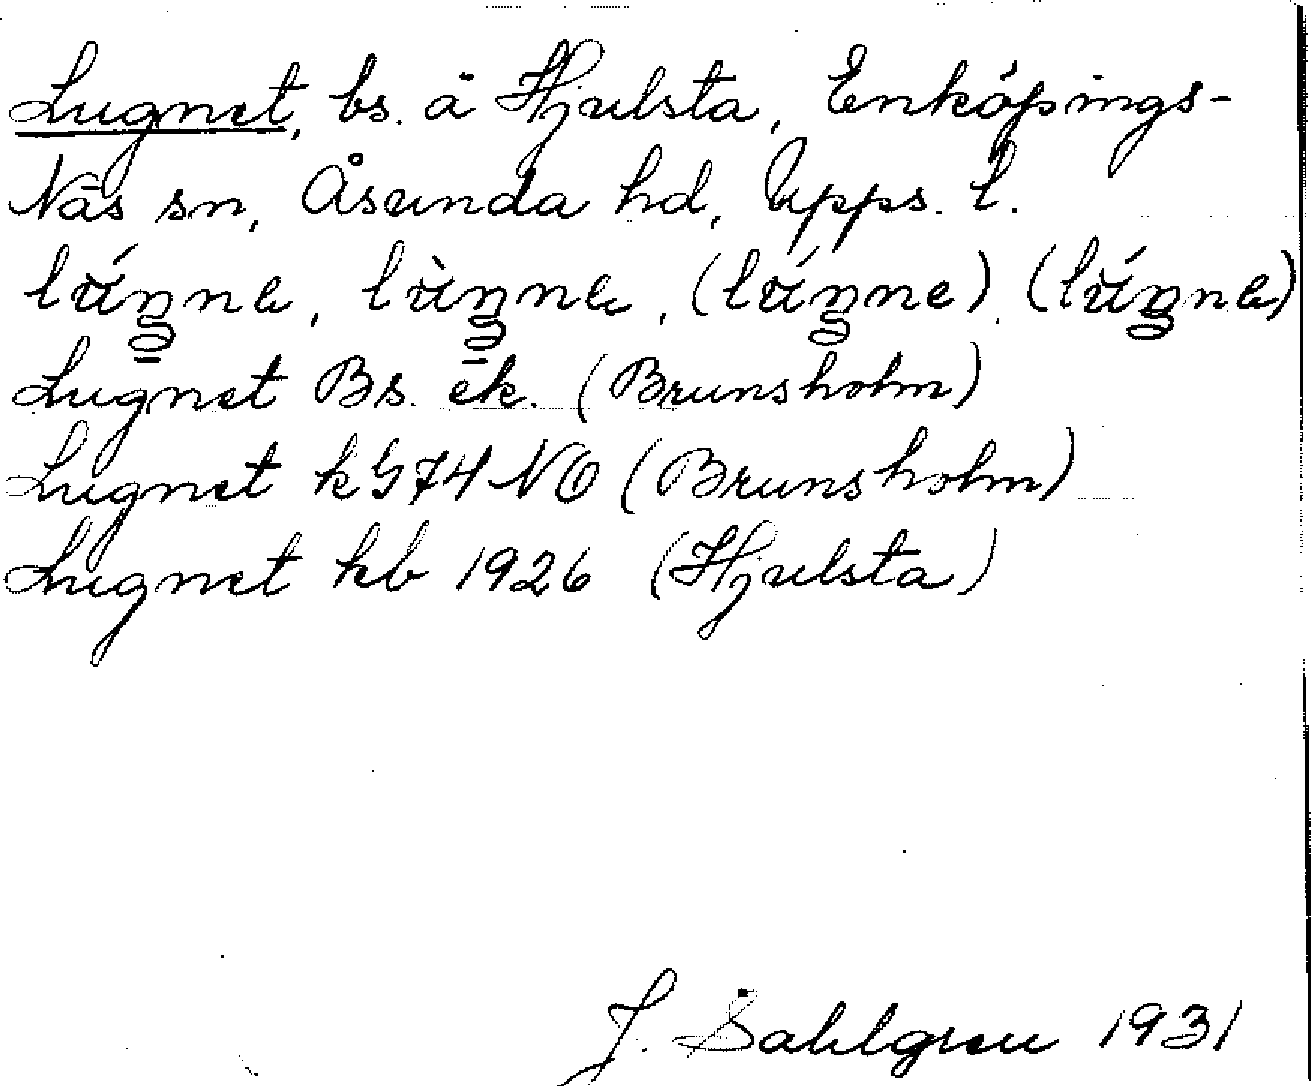 Lugnet, bs. å Hjulsta, Enköpings-
Näs sn, Åsunda hd, Upps. l.
Lugnet Bs. ek. (Brunsholm)
Lugnet k G74 NO (Brunsholm)
Lugnet kb 1926 (Hjulsta)
J. Sahlgren 1931